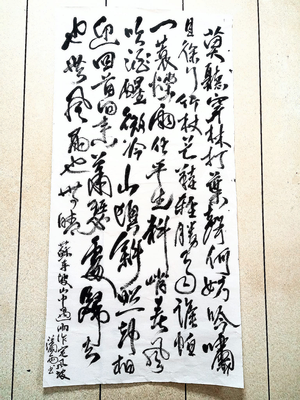 莫聽穿林打葉聲何妨吟嘯
且徐行竹杖芒鞋輕勝馬誰怕
一蓑煙雨任平生料峭春風
吹酒醒微冷山頭斜照却相
迎回首向來蕭瑟處歸去
也無風雨也無晴 蘇東坡山中遇雨作定風波